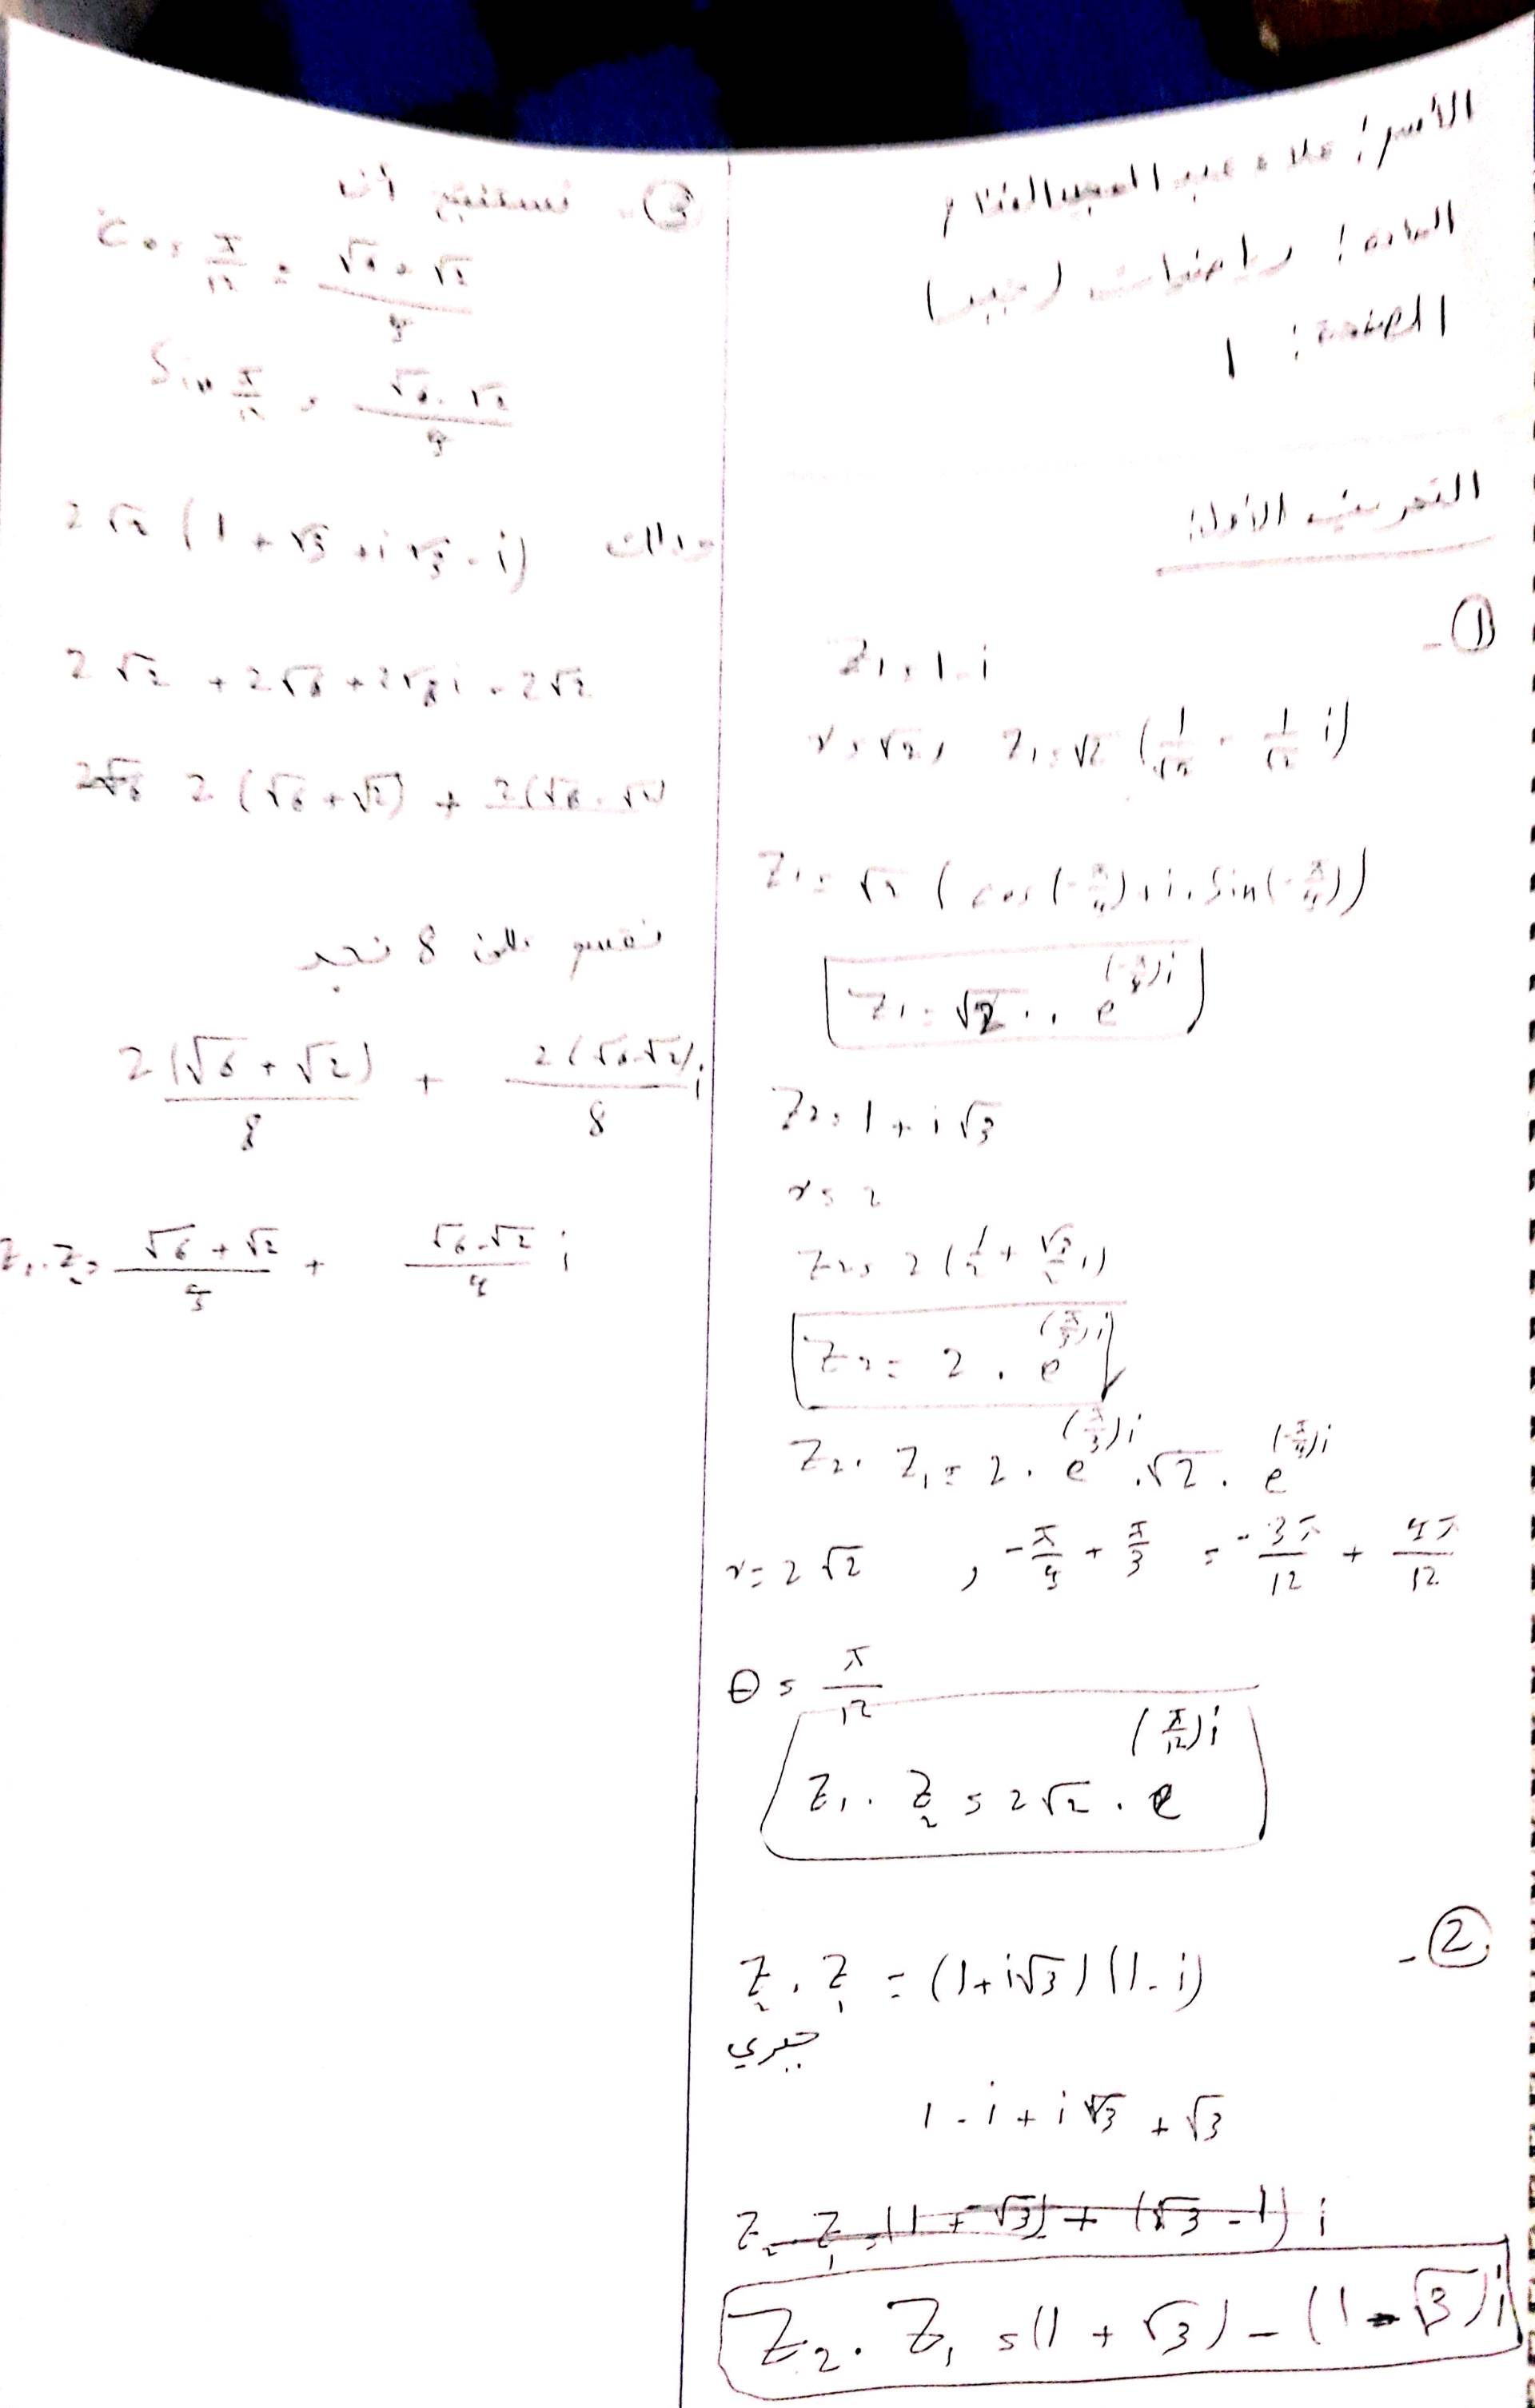 الأسم: علاء عبد المجيد
المادة: رياضيات (جبر)
الصفحة: 1
التمرين الأول:
① -
Z₁ = 1 - i
r = √2 , Z₁ = √2 (1/√2 - 1/√2 i)
Z₁ = √2 (cos(-π/4) + i . sin(-π/4))
Z₁ = √2 . e^(-π/4)i
Z₂ = 1 + i√3
r = 2
Z₂ = 2 (1/2 + √3/2 i)
Z₂ = 2 . e^(π/3)i
Z₂ . Z₁ = 2 . e^(π/3)i . √2 . e^(-π/4)i
r = 2√2 , -π/4 + π/3 = -3π/12 + 4π/12
θ = π/12
Z₁ . Z₂ = 2√2 . e^(π/12)i
② -
Z₂ . Z₁ = (1 + i√3) (1 - i)
جبري
1 - i + i√3 + √3
Z₂ . Z₁ = (1 + √3) + (√3 - 1) i
Z₂ . Z₁ = (1 + √3) - (1 - √3) i
③ - نستنتج أن
cos π/12 = (√6 + √2)/4
sin π/12 = (√6 - √2)/4
2√2 (1 + √3 + i√3 - i)
2√2 + 2√6 + 2√6 i - 2√2
2 (√6 + √2) + 2(√6 - √2)
نقسم على 8 نجد
2(√6 + √2)/8 + 2(√6 - √2)/8 i
Z₁ . Z₂ = (√6 + √2)/4 + (√6 - √2)/4 i